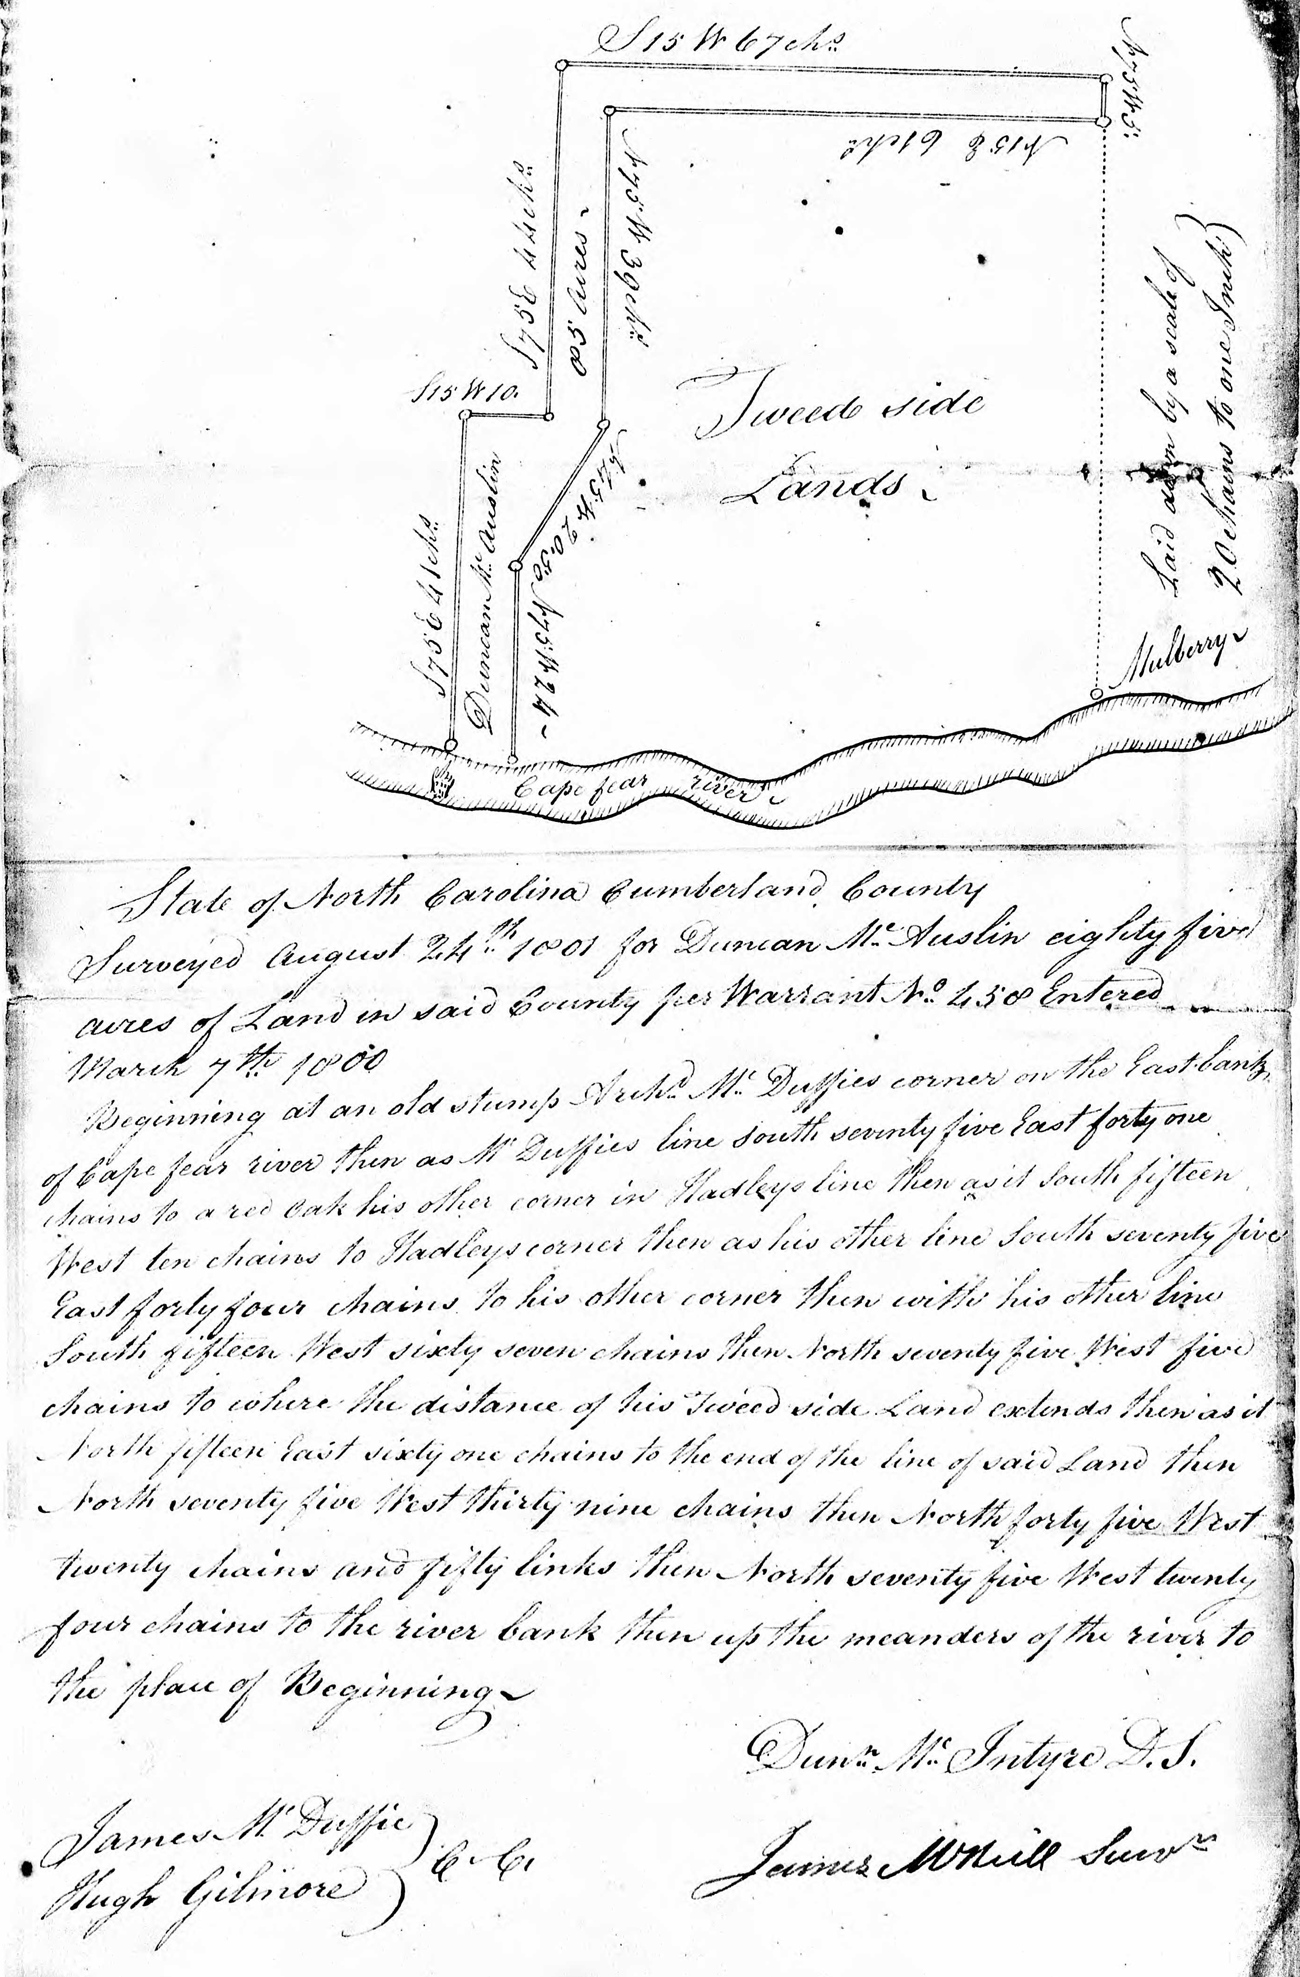 S15 W 67 chs
N75 W 5
N15 E 61 chs
S75 E 44 chs
85 Acres
N75 W 39 chs
S15 W 10
Tweed side
Lands
N45 W 20,50
S75 E 41 chs
Duncan Mc Auslin
N75 W 24
Laid down by a scale of
20 chains to one Inch
Mulberry
Cape fear river
State of North Carolina Cumberland County
Surveyed August 24th 1801 for Duncan Mc Auslin eighty five
acres of Land in said County per Warrant No 458 Entered
March 7th 1800
Beginning at an old stump Archd Mc Duffies corner on the East bank
of Cape fear river then as Mc Duffies line South seventy five East forty one
chains to a red Oak his other corner in Hadleys line then as it South fifteen
West ten chains to Hadleys corner then as his other line South seventy five
East forty four chains to his other corner then with his other line
South fifteen West sixty seven chains then North seventy five West five
chains to where the distance of his Tweed side Land extends then as it
North fifteen East sixty one chains to the end of the line of said Land then
North seventy five West thirty nine chains then North forty five West
twenty chains and fifty links then North seventy five West twenty
four chains to the river bank then up the meanders of the river to
the place of Beginning
Dunn Mc Intyre D. S.
James Mc Duffie
Hugh Gilmore
C. C.
James McNeill Survr